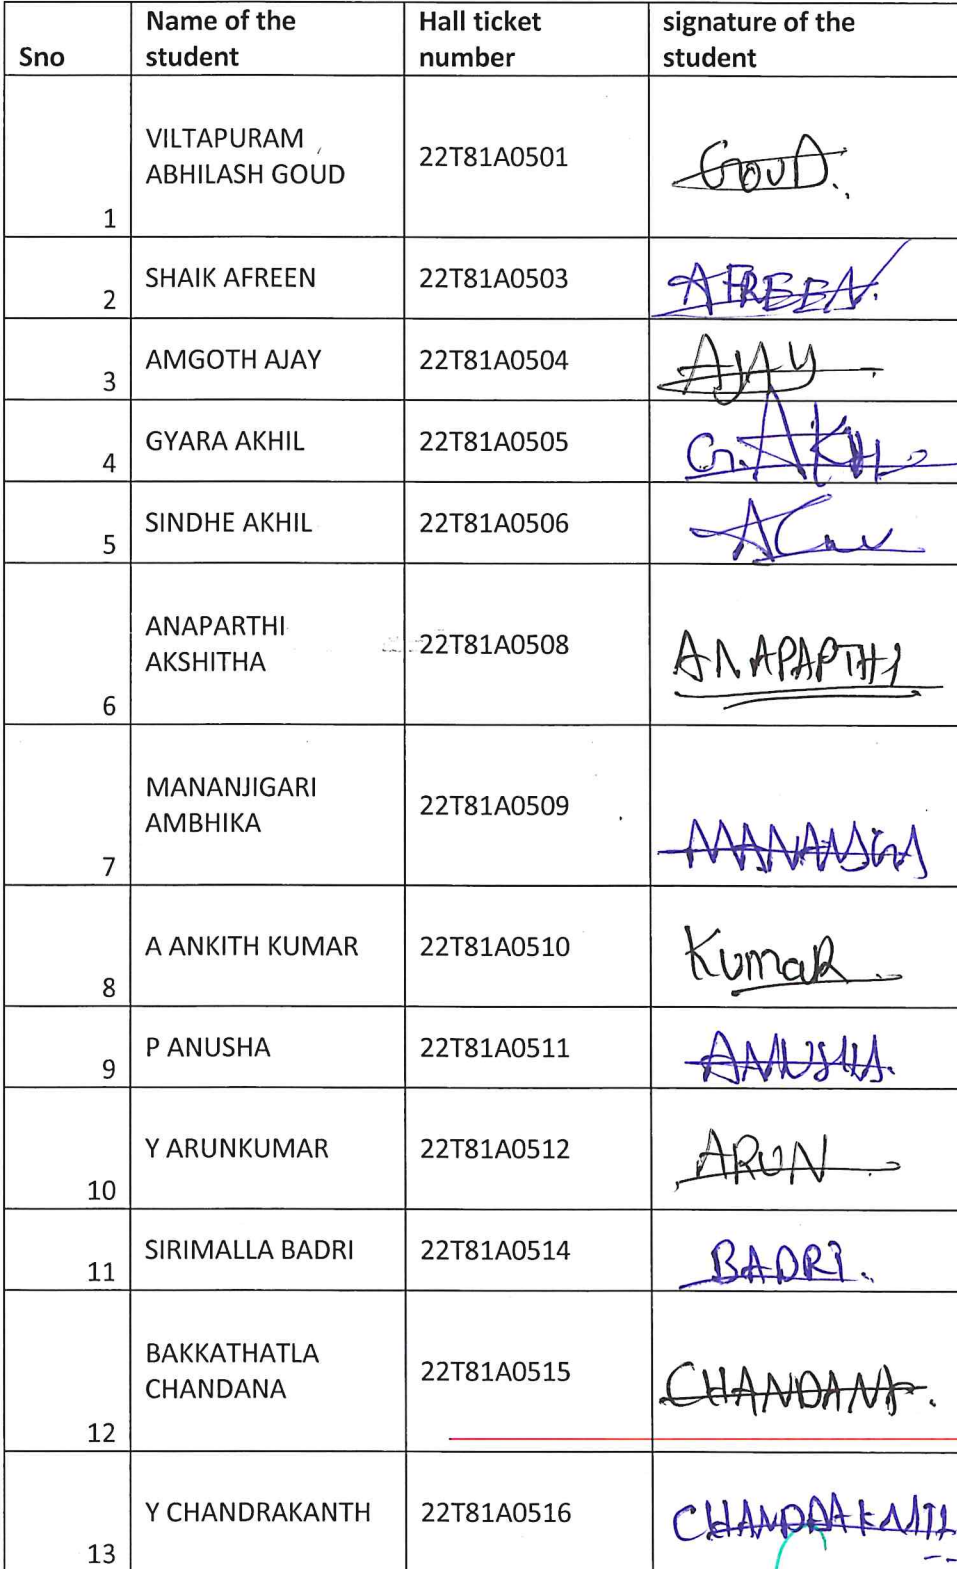 Sno Name of the student Hall ticket number signature of the student
1 VILTAPURAM ABHILASH GOUD 22T81A0501 GOUD.
2 SHAIK AFREEN 22T81A0503 AFREEN.
3 AMGOTH AJAY 22T81A0504 AJAY
4 GYARA AKHIL 22T81A0505 G.AKH
5 SINDHE AKHIL 22T81A0506
6 ANAPARTHI AKSHITHA 22T81A0508 ANAPAPTHI
7 MANANJIGARI AMBHIKA 22T81A0509
8 A ANKITH KUMAR 22T81A0510 KumaR
9 P ANUSHA 22T81A0511 ANUSHA.
10 Y ARUNKUMAR 22T81A0512 ARUN
11 SIRIMALLA BADRI 22T81A0514 BADRI.
12 BAKKATHATLA CHANDANA 22T81A0515 CHANDANA.
13 Y CHANDRAKANTH 22T81A0516